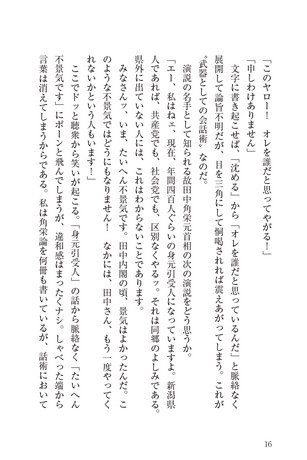 「このヤロー！　オレを誰だと思ってやがる！」
「申しわけありません」
　文字に書き起こせば、「沈める」から「オレを誰だと思っているんだ」と脈絡なく
展開して論旨不明だが、目を三角にして恫喝されれば震えあがってしまう。これが
〝武器としての会話術〟なのだ。
　演説の名手として知られる故田中角栄元首相の次の演説をどう思うか。
「エー、私はねェ、現在、年間四百人ぐらいの身元引受人になっていますよ。新潟県
人であれば、共産党でも、社会党でも、区別なくやるッ。それは同郷のよしみである。
県外に出ていない人には、これはわからないことであります。
　みなさんッ、いま、たいへん不景気です。田中内閣の頃、景気はよかったんだ。こ
のような不景気ではどうにもなりません！　なかには、『田中さん、もう一度やってく
れないか』という人もいます！」
　ここでドッと聴衆から笑いが起こる。「身元引受人」の話から脈絡なく「たいへん
不景気です」にポーンと飛んでしまうが、違和感はまったくナシ。しゃべった端から
言葉は消えてしまうからである。私は角栄論を何冊も書いているが、話術において
16